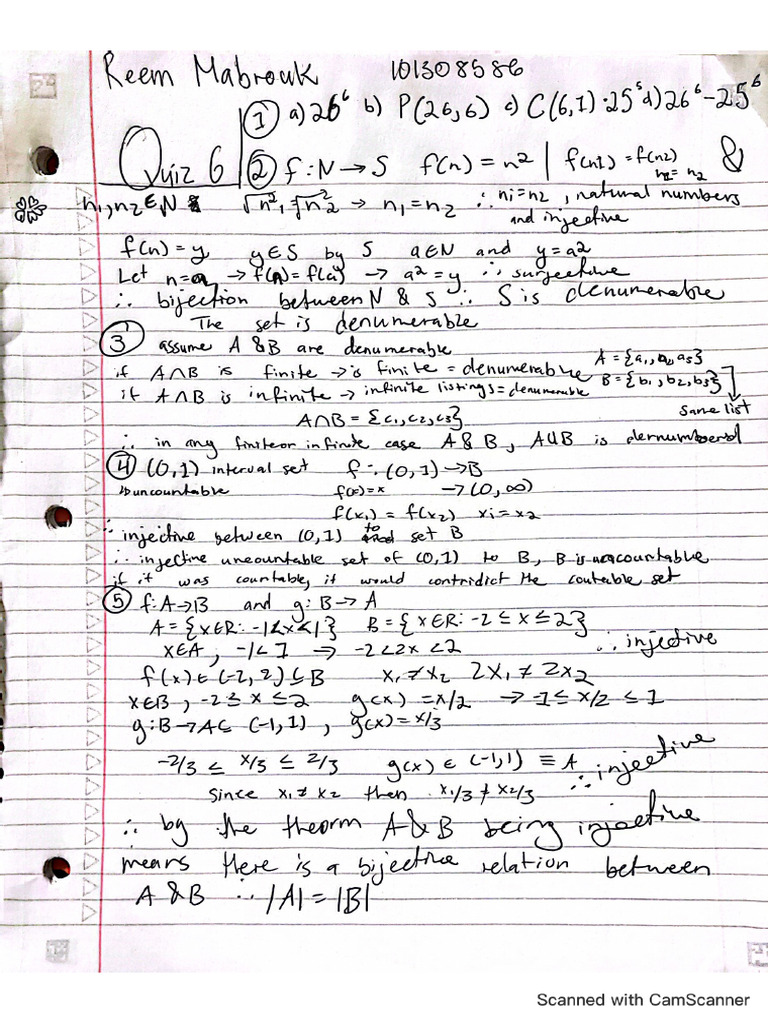 Reem Mabrouk 101308586
① a) 26⁶ b) P(26,6) c) C(6,1)·25⁵ d) 26⁶-25⁶
Quiz 6 ② f:N→S f(n)=n² | f(n1)=f(n2) &
n1=n2
n₁,n₂∈N √n²₁=√n²₂ → n₁=n₂ ∴ n1=n2, natural numbers
and injective
f(n)=y y∈S by S a∈N and y=a²
Let n=a →f(n)=f(a) → a²=y ∴ surjective
∴ bijection between N & S ∴ S is denumerable
The set is denumerable
③ assume A & B are denumerable
if A∩B is finite → is finite = denumerable A={a₁,a₂,a₃}
if A∩B is infinite → infinite listings=denumerable B={b₁,b₂,b₃}
same list
A∩B={c₁,c₂,c₃}
∴ in any finite or infinite case A & B, A∪B is dernumberd
④ (0,1) interval set f:(0,1)→B
↳uncountable f(x)=x →(0,∞)
f(x₁)=f(x₂) x₁=x₂
∴ injective between (0,1) to set B
∴ injective uncountable set of (0,1) to B, B is uncountable
if it was countable, it would contridict the coutable set
⑤ f:A→B and g:B→A
A={x∈R:-1<x<1} B={x∈R:-2≤x≤2}
x∈A, -1<1 → -2<2x<2 ∴ injective
f(x)∈(-2,2)⊆B x₁≠x₂ 2x₁≠2x₂
x∈B, -2≤x≤2 g(x)=x/2 → -1≤x/2≤1
g:B→A⊆(-1,1), g(x)=x/3
-2/3≤x/3≤2/3 g(x)∈(-1,1)≡A ∴ injective
since x₁≠x₂ then x₁/3≠x₂/3
∴ by the theorm A&B being injective
means there is a bijective relation between
A & B ∴ |A|=|B|
Scanned with CamScanner